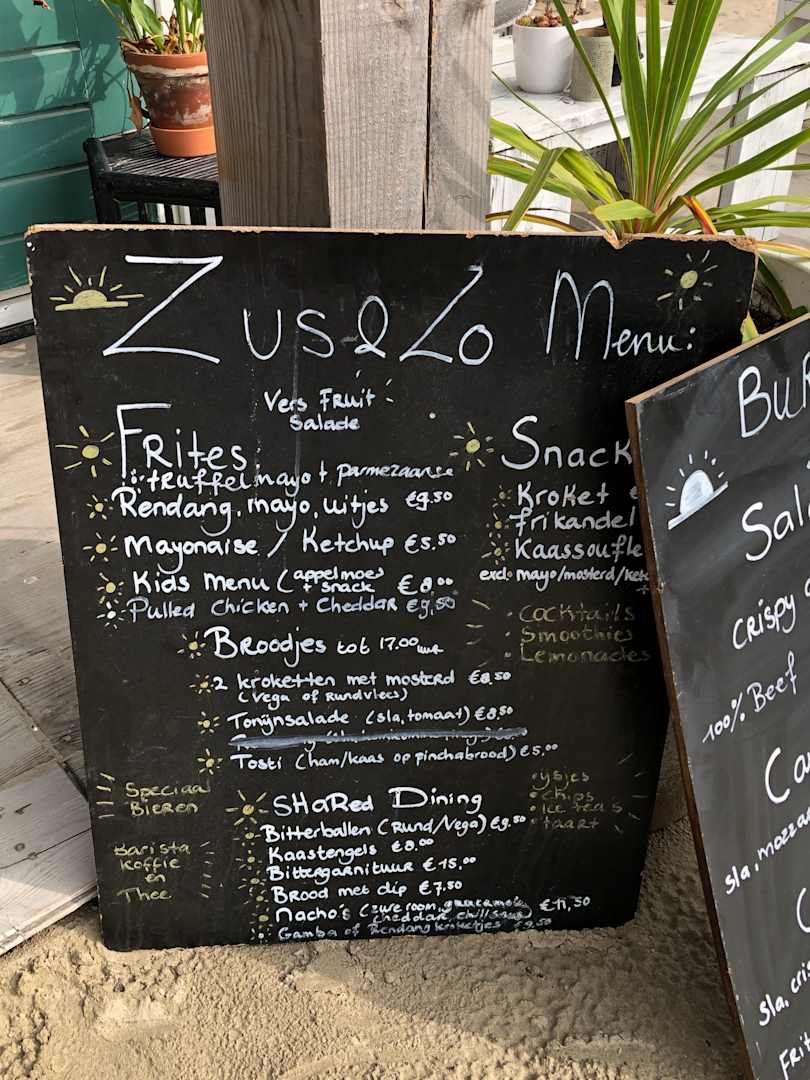 Zus & Zo Menu:
Vers Fruit
Salade
Frites
truffelmayo + parmezaanse
Rendang, mayo, uitjes €9.50
Mayonaise / Ketchup €5.50
Kids Menu (appelmoes
+ snack €8.00
Pulled chicken + Cheddar €9.50
Snack
Kroket €
frikandel
Kaassoufle
excl. mayo/mosterd/ketc
Cocktails
Smoothies
Lemonades
Broodjes tot 17.00 uur
2 kroketten met mosterd €8.50
(Vega of Rundvlees)
Tonijnsalade (sla, tomaat) €8.50
Tosti (ham/kaas op pinchabrood) €5.00
Speciaal
Bieren
Barista
Koffie
en
Thee
Shared Dining
Bitterballen (Rund/Vega) €9.50
Kaastengels €8.00
Bittergarnituur €15.00
Brood met dip €7.50
Nacho's (zure room, guacamole €11,50
Cheddar, chilisaus)
Gamba of Rendang kroketjes €9.50
ysjes
chips
ice tea's
taart
BUR
Sala
CRISPY
100% Beef
Ca
sla, mozza
sla, cris
Frit